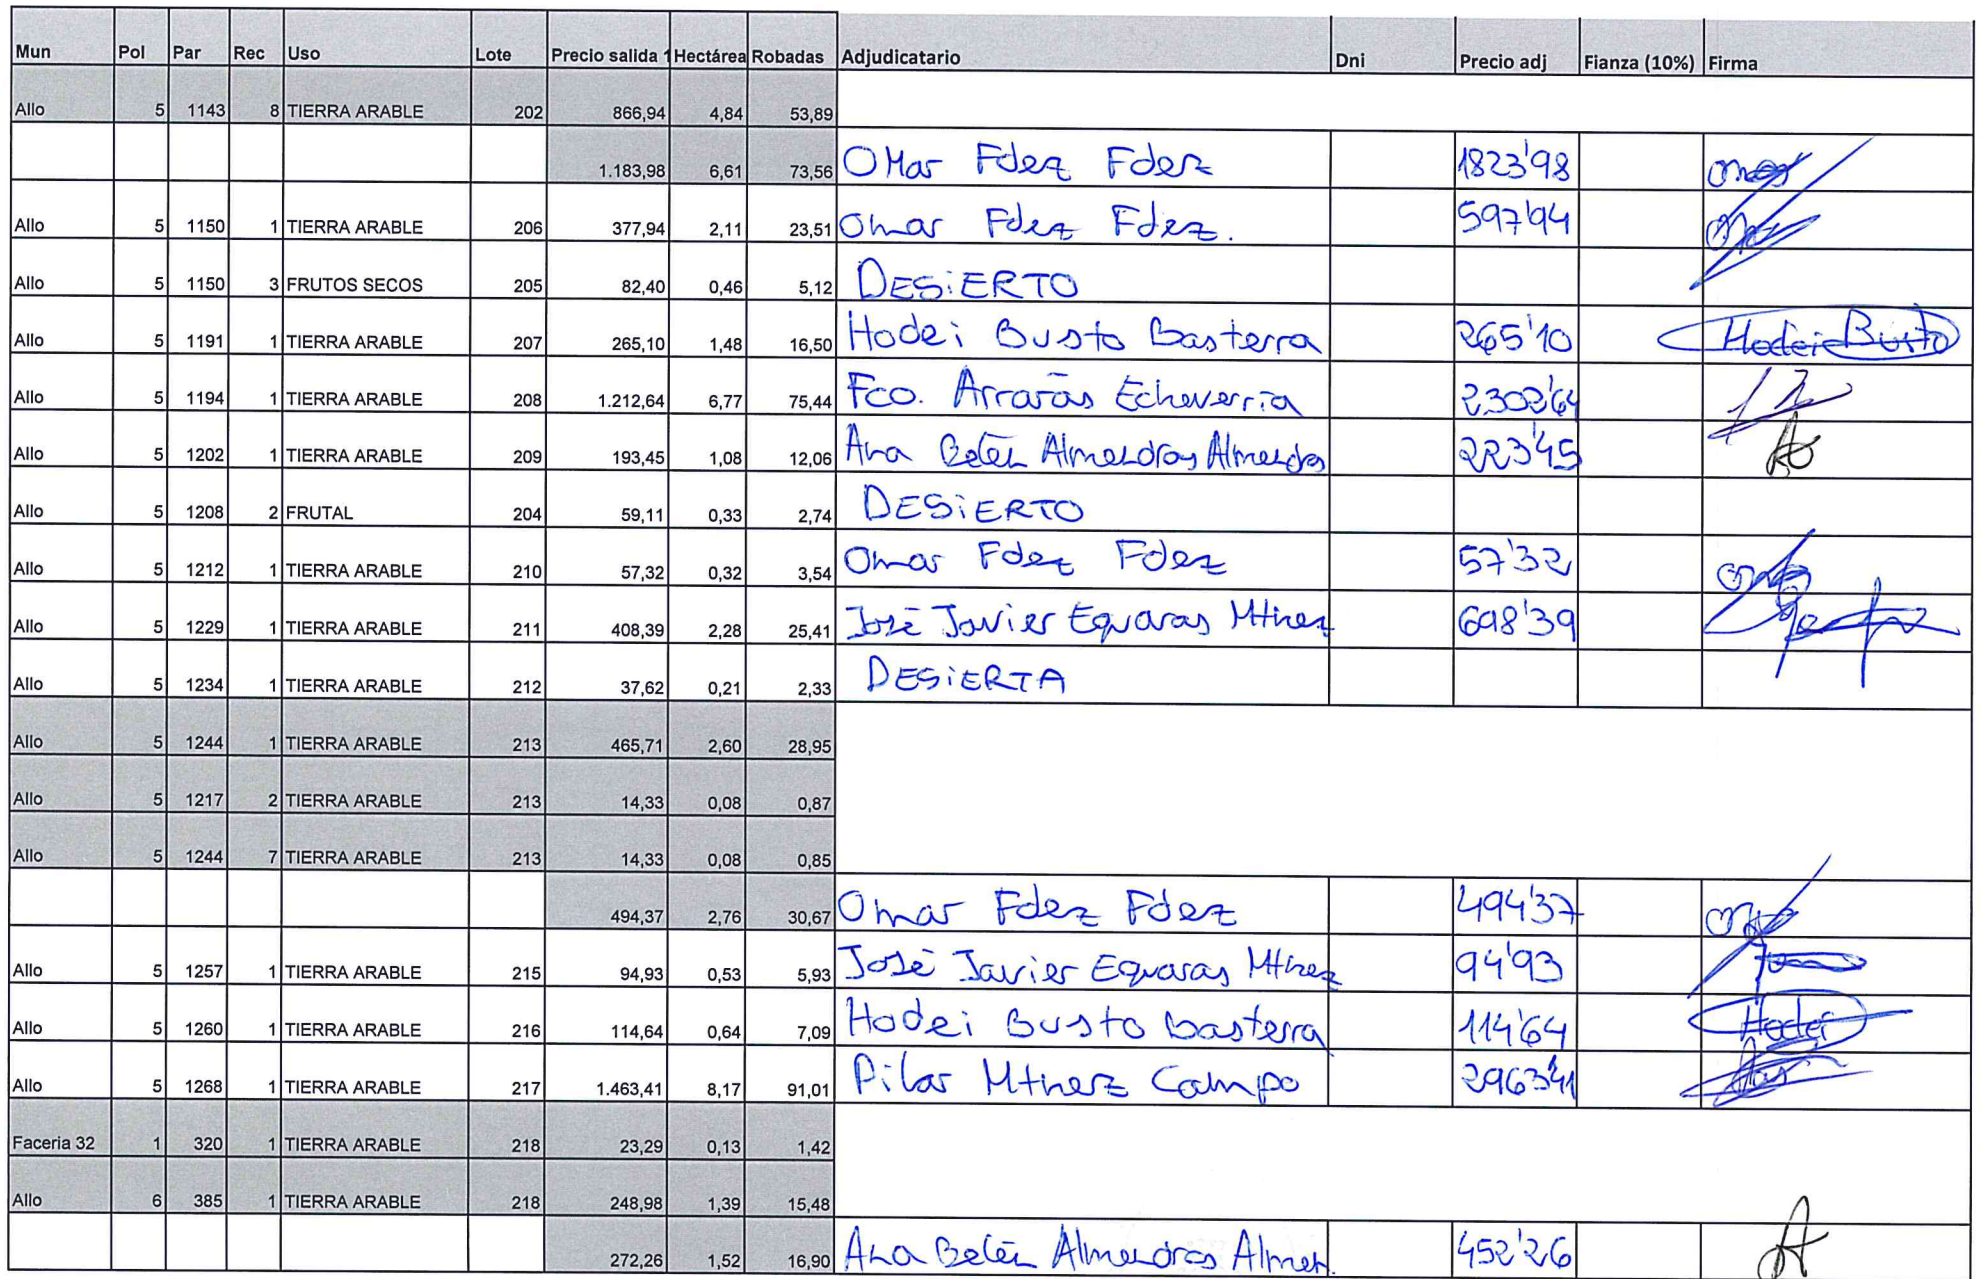 Mun Pol Par Rec Uso Lote Precio salida 1 Hectárea Robadas Adjudicatario Dni Precio adj Fianza (10%) Firma
Allo 5 1143 8 TIERRA ARABLE 202 866,94 4,84 53,89
1.183,98 6,61 73,56 Omar Fdez Fdez 1823'98 Omar
Allo 5 1150 1 TIERRA ARABLE 206 377,94 2,11 23,51 Omar Fdez Fdez. 597'94 Omar
Allo 5 1150 3 FRUTOS SECOS 205 82,40 0,46 5,12 DESiERTO
Allo 5 1191 1 TIERRA ARABLE 207 265,10 1,48 16,50 Hodei Busto Basterra 265'10 Hodei Busto
Allo 5 1194 1 TIERRA ARABLE 208 1.212,64 6,77 75,44 Fco. Arrarás Echeverria 2302'64
Allo 5 1202 1 TIERRA ARABLE 209 193,45 1,08 12,06 Ana Belén Almendros Almendros 223'45
Allo 5 1208 2 FRUTAL 204 59,11 0,33 2,74 DESiERTO
Allo 5 1212 1 TIERRA ARABLE 210 57,32 0,32 3,54 Omar Fdez Fdez 57'32
Allo 5 1229 1 TIERRA ARABLE 211 408,39 2,28 25,41 José Javier Eguaras Mtnez 698'39
Allo 5 1234 1 TIERRA ARABLE 212 37,62 0,21 2,33 DESiERTA
Allo 5 1244 1 TIERRA ARABLE 213 465,71 2,60 28,95
Allo 5 1217 2 TIERRA ARABLE 213 14,33 0,08 0,87
Allo 5 1244 7 TIERRA ARABLE 213 14,33 0,08 0,85
494,37 2,76 30,67 Omar Fdez Fdez 494'37
Allo 5 1257 1 TIERRA ARABLE 215 94,93 0,53 5,93 José Javier Eguaras Mtnez 94'93
Allo 5 1260 1 TIERRA ARABLE 216 114,64 0,64 7,09 Hodei Busto Basterra 114'64 Hodei
Allo 5 1268 1 TIERRA ARABLE 217 1.463,41 8,17 91,01 Pilar Mtnez Campo 2963'41
Faceria 32 1 320 1 TIERRA ARABLE 218 23,29 0,13 1,42
Allo 6 385 1 TIERRA ARABLE 218 248,98 1,39 15,48
272,26 1,52 16,90 Ana Belén Almendros Almen. 452'26